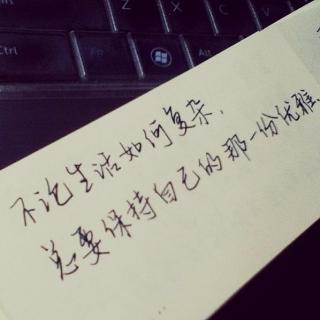 Z
X
C
Ctrl
Fn
Alt
不论生活如何复杂,
总要保持自己的那一份优雅.